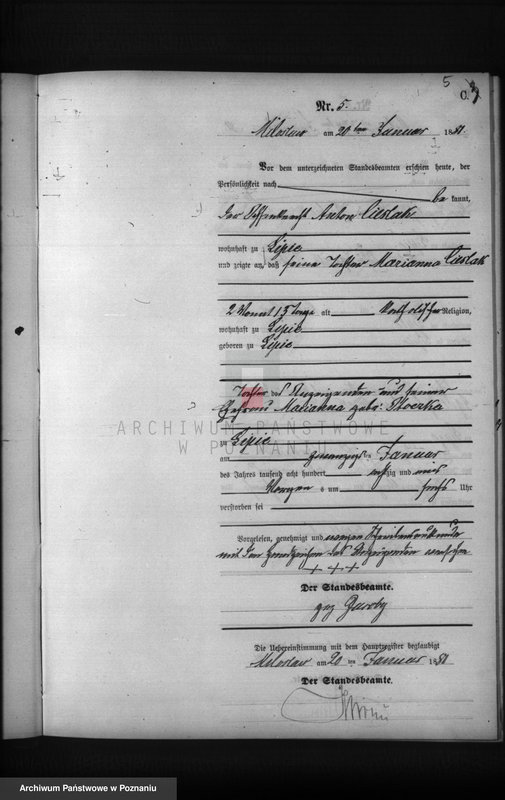 5
C.
Nr. 5.
Miloslaw am 20ten Januar 1881.
Vor dem unterzeichneten Standesbeamten erschien heute, der
Persönlichkeit nach
be kannt,
der Anton Cieslak
wohnhaft zu Lipie
und zeigte an, daß seine Tochter Marianna Cieslak
2 Monat 15 Tage alt katholischer Religion,
wohnhaft zu Lipie
geboren zu Lipie
Tochter des Anzeigenden und seiner
Ehefrau Marianna geb:
zu Lipie
am zwanzigsten Januar
des Jahres tausend acht hundert achtzig und eins
Morgens um sechs Uhr
verstorben sei
Vorgelesen, genehmigt und wegen
mit den Handzeichen des Anzeigenden versehen
+ + +
Der Standesbeamte.
gez
Die Uebereinstimmung mit dem Hauptregister beglaubigt
Miloslaw am 20 ten Januar 1881
Der Standesbeamte.
ARCHIWUM PAŃSTWOWE
W POZNANIU
Archiwum Państwowe w Poznaniu